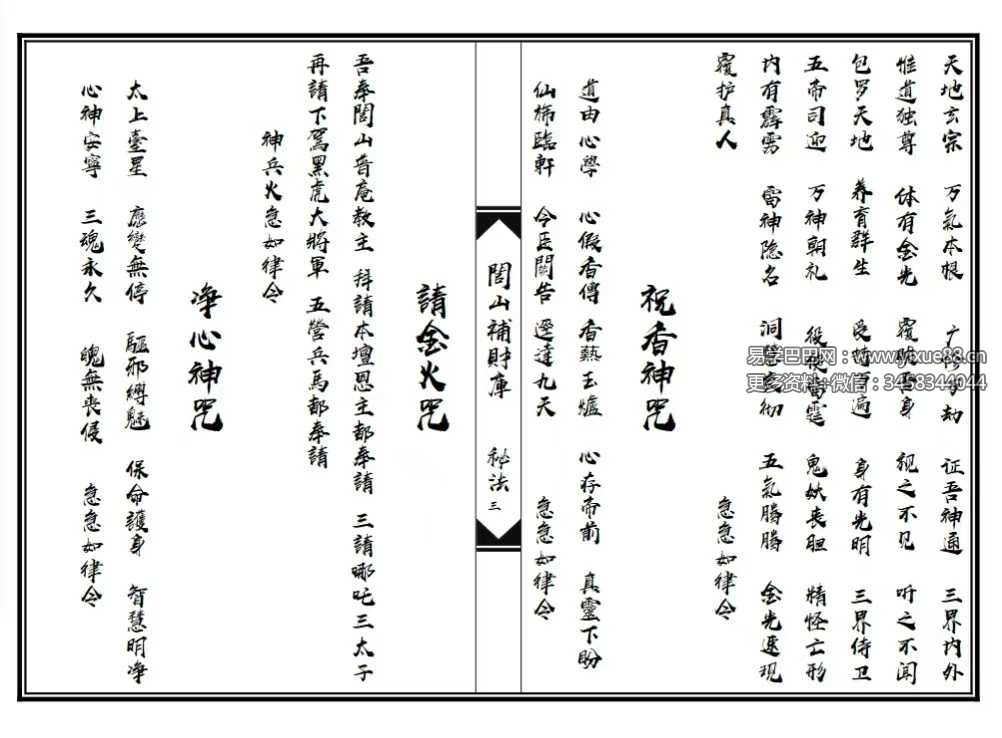 天地玄宗 万氣本根 广修万劫 证吾神通 三界内外
惟道独尊 体有金光 覆映吾身 视之不见 听之不闻
包罗天地 养育群生 受持万遍 身有光明 三界侍卫
五帝司迎 万神朝礼 役使雷霆 鬼妖丧胆 精怪亡形
内有霹雳 雷神隐名 洞慧交彻 五氣腾腾 金光速现
覆护真人 急急如律令
祝香神咒
道由心學 心假香傳 香藝玉爐 心存帝前 真靈下盼
仙旆臨軒 今臣關告 逕達九天 急急如律令
閭山補財庫 秘法 三
請金火咒
吾奉閭山普庵教主 拜請本壇恩主都奉請 三請哪吒三太子
再請下駕黑虎大將軍 五營兵馬都奉請
神兵火急如律令
净心神咒
太上臺星 應變無停 驅邪縛魅 保命護身 智慧明净
心神安寧 三魂永久 魄無丧侵 急急如律令
易学巴巴网：www.yixue88.cn
更多资料+微信：3458344044